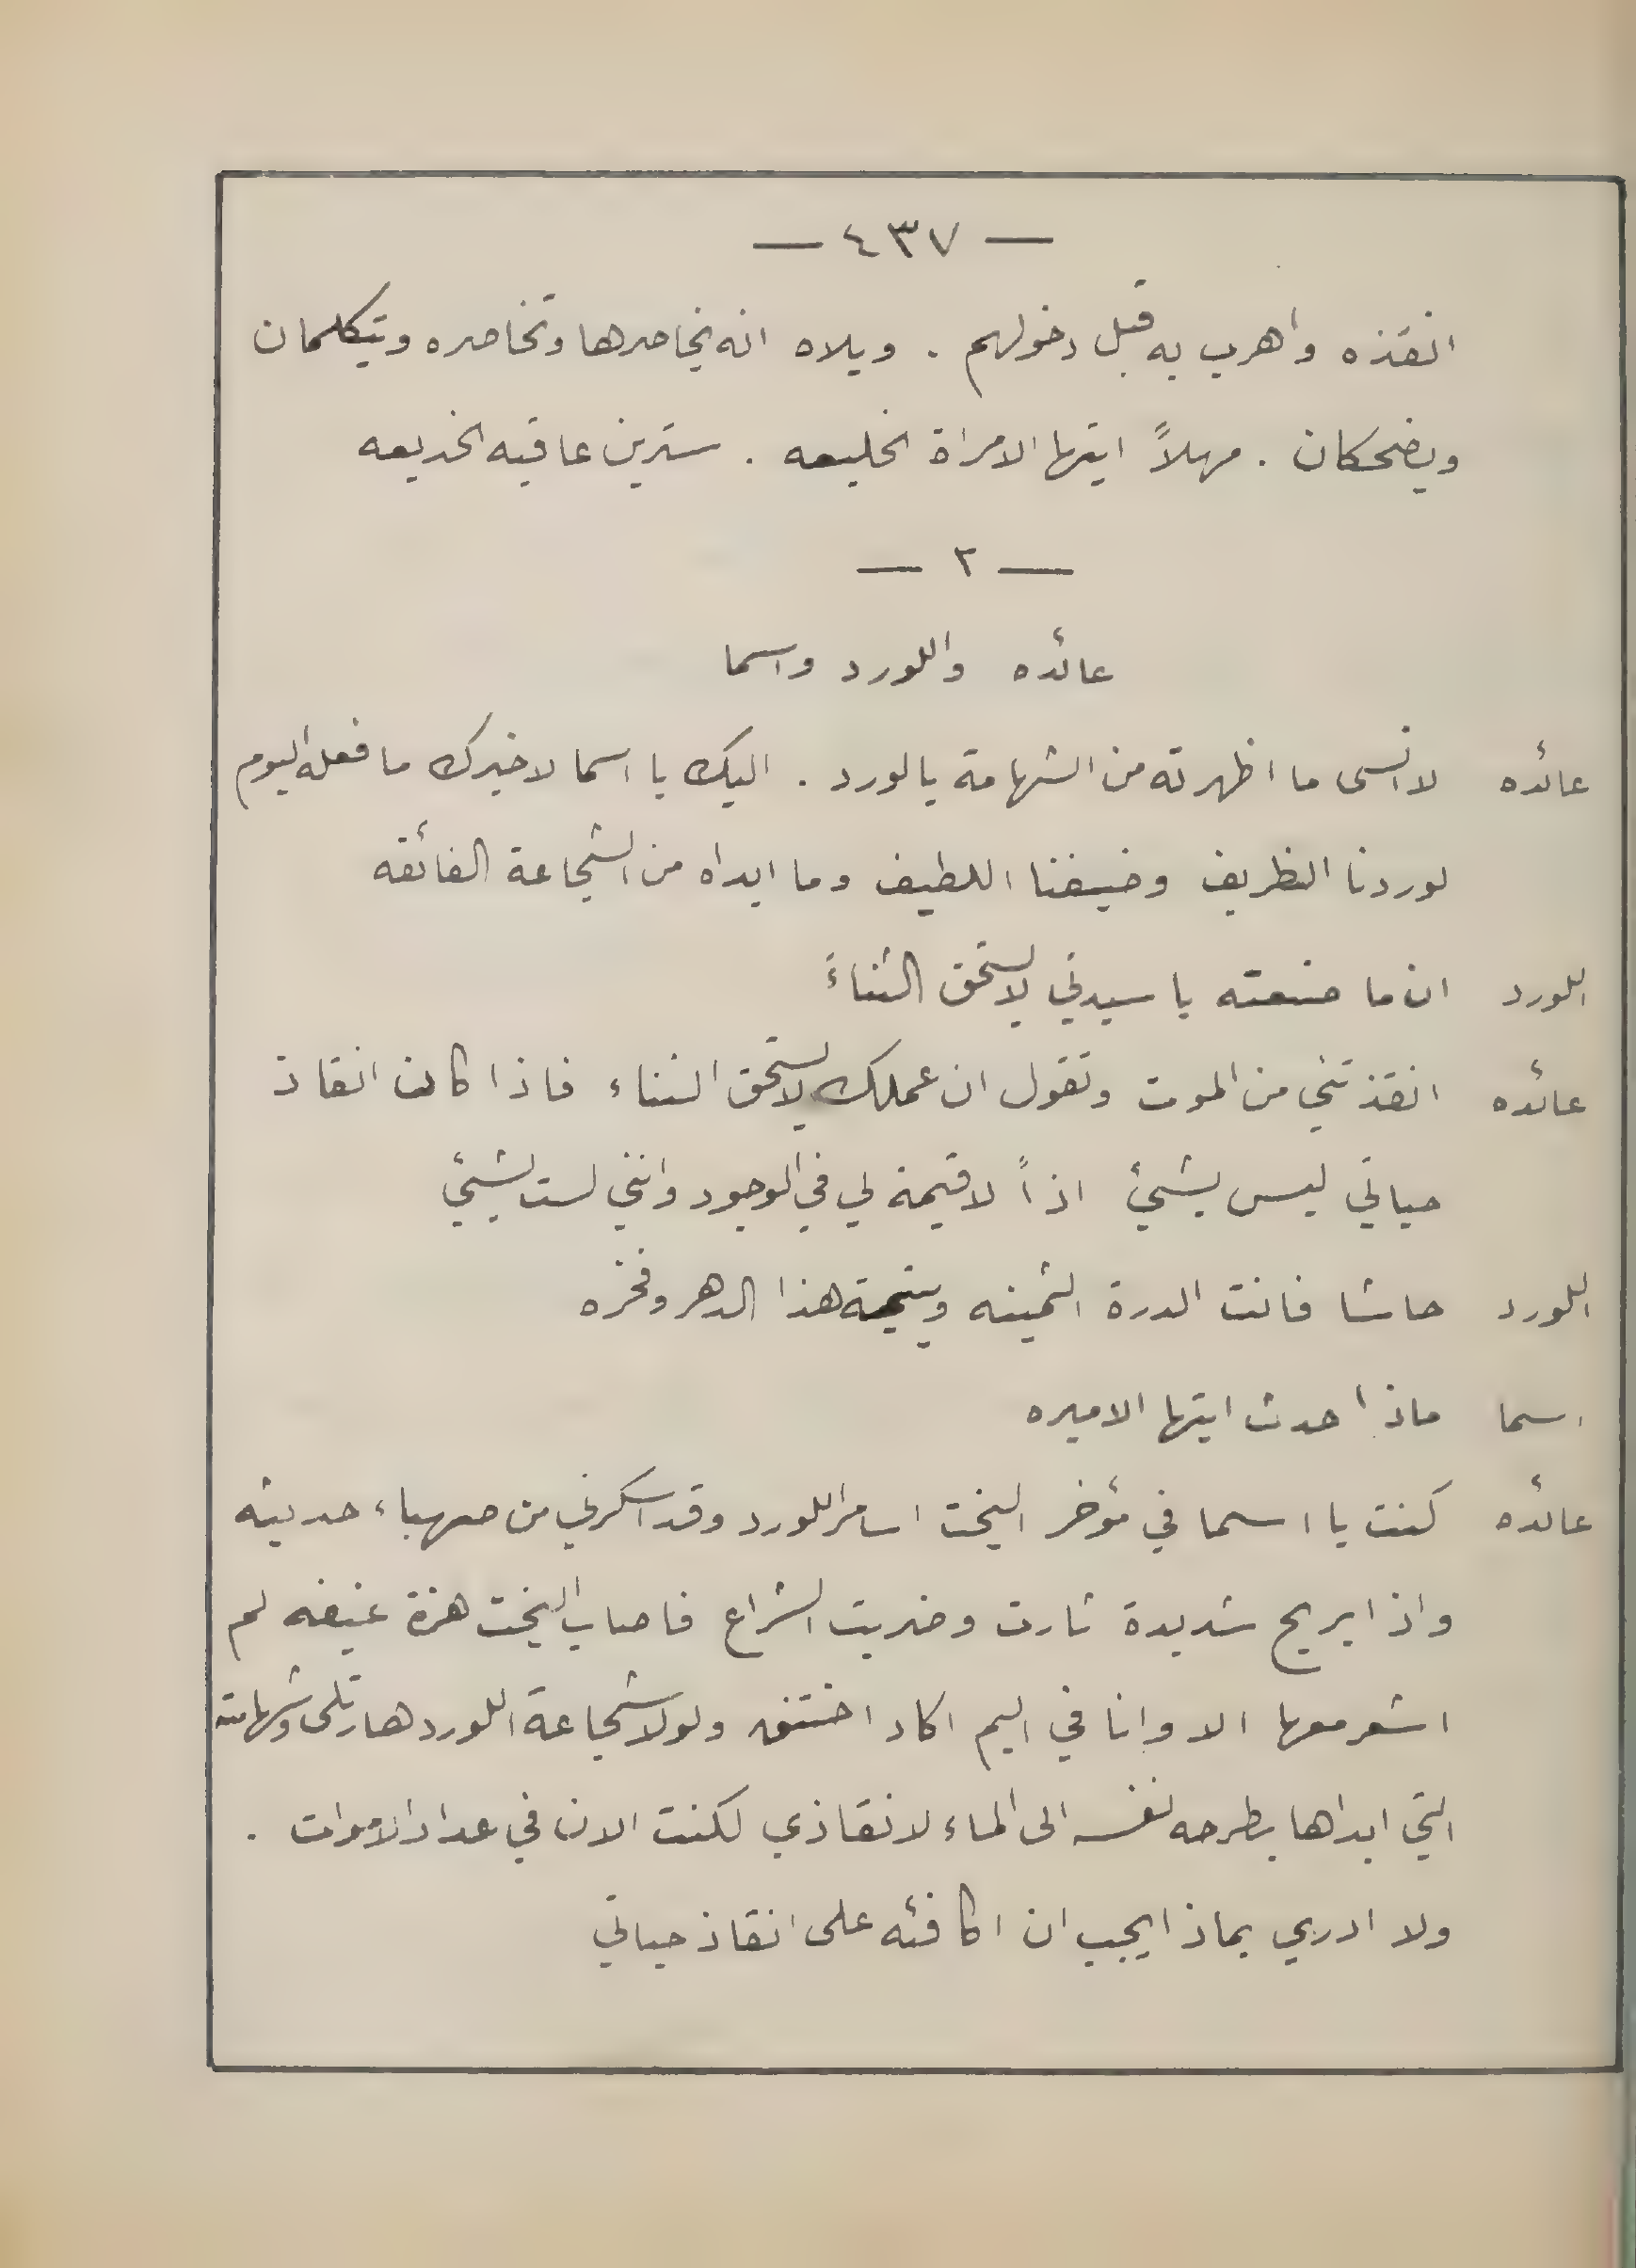 — ٤٣٧ —
انقذه واهرب به قبل دخولهم . ويلاه انه يخاصرها وتخاصره ويتكلمان
ويضحكان . مهلاً ايتها الامراة الخليعه . سترين عاقبه الخديعه
— ٢ —
عائده واللورد واسما
عائده لا انسى ما اظهرته من الشهامة يا لورد . اليك يا اسما لاخبرك ما فعله اليوم
لوردنا الظريف وضيفنا اللطيف وما ابداه من الشجاعة الفائقه
اللورد ان ما صنعته يا سيدتي لا يستحق الثناءَ
عائده انقذتني من الموت وتقول ان عملك لا يستحق الثناء فاذا كان انقاذ
حياتي ليس بشيئ اذاً لا قيمة لي في الوجود وانني لست بشيئ
اللورد حاشا فانت الدرة الثمينه ويتيمة هذا الدهر وفخره
اسما ماذا حدث ايتها الاميره
عائده كنت يا اسما في مؤخر اليخت اسامر اللورد وقد اسكرني من صهباء حديثه
واذا بريح شديدة ثارت وضربت الشراع فاصاب اليخت هزة عنيفه لم
اشعر معها الا وانا في اليم اكاد اختنق ولولا شجاعة اللورد هارتلى وشهامته
التي ابداها بطرحه نفسه الى الماء لانقاذي لكنت الان في عداد الاموات .
ولا ادري بماذا يجب ان اكافئه على انقاذ حياتي